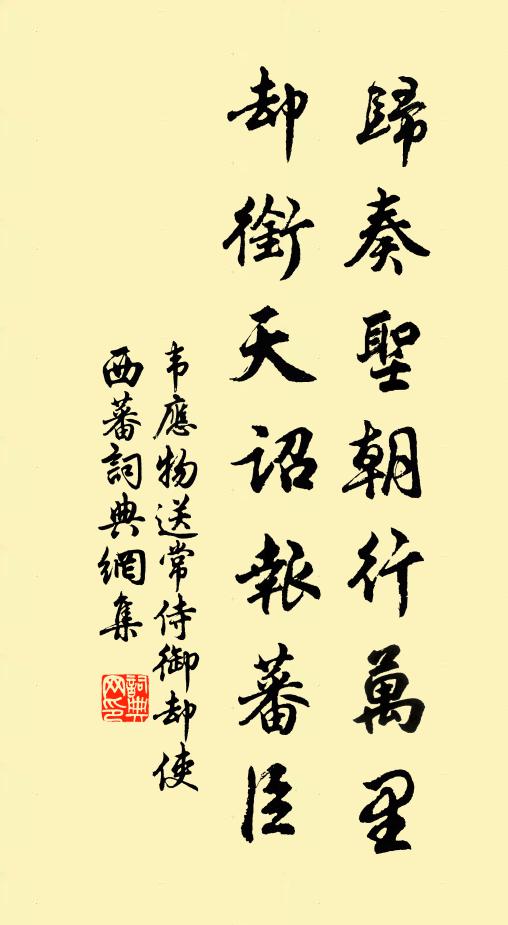 歸奏聖朝行萬里
却銜天詔報蕃臣
韦應物送常侍御却使
西蕃詞典網集
詞典网印